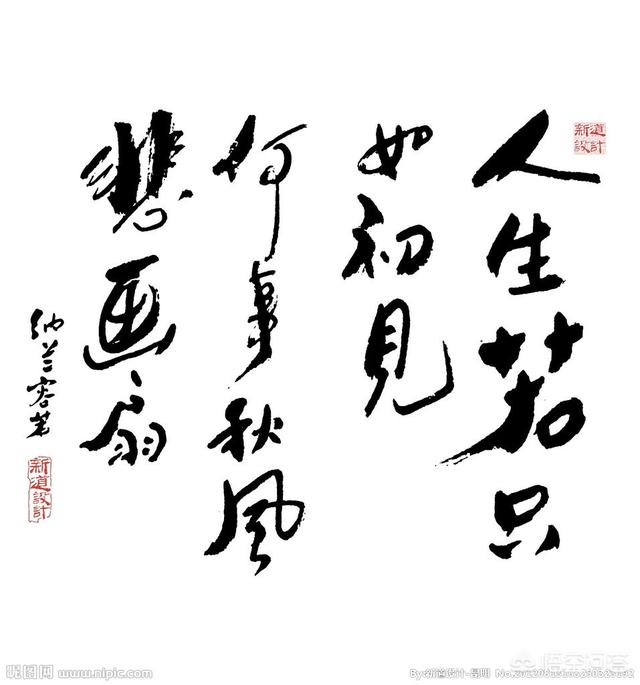 人生若只
如初見
何事秋風
悲画扇
纳兰容若
新道設計
新道設計
昵图网 www.nipic.com
By:新道设计-昌明
悟空问答